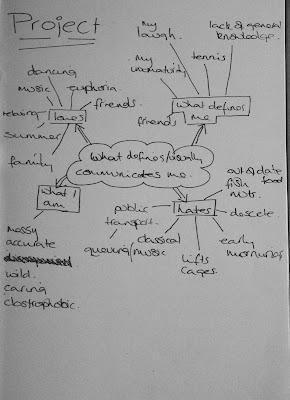 Project
my laugh.
lack of general knowledge.
my immaturity
tennis
dancing
music
euphoria.
friends.
relaxing
loves
summer
family
what defines me
friends
what defines/visually communicates me.
what I am
messy
accurate
wild.
caring
clostrophobic.
hates
out of date food
fish
nuts.
public transport.
queuing
classical music
lifts
cages.
early mornings